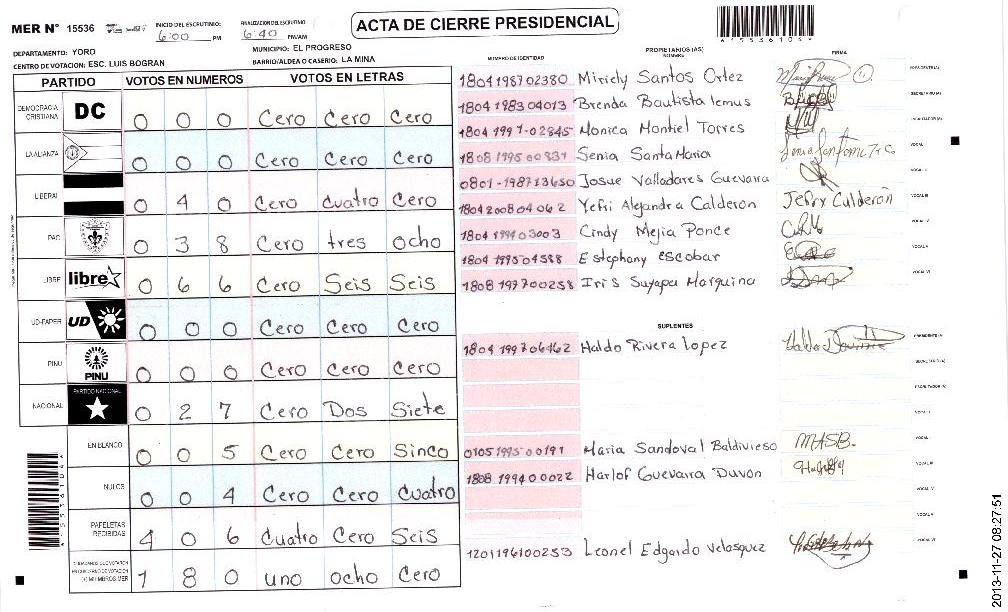 MER N° 15536 INICIO DEL ESCRUTINIO: 6:00 PM FINALIZACION DEL ESCRUTINIO: 6:40 PM/AM
ACTA DE CIERRE PRESIDENCIAL
DEPARTAMENTO: YORO MUNICIPIO: EL PROGRESO
CENTRO DE VOTACION: ESC. LUIS BOGRAN BARRIO/ALDEA O CASERIO: LA MINA
PARTIDO VOTOS EN NUMEROS VOTOS EN LETRAS
DEMOCRACIA CRISTIANA DC 0 0 0 Cero Cero Cero
LA ALIANZA 0 0 0 Cero Cero Cero
LIBERAL 0 4 0 Cero Cuatro Cero
PAC 0 3 8 Cero tres Ocho
LIBRE libre 0 6 6 Cero Seis Seis
UD-FAPER UD 0 0 0 Cero Cero Cero
PINU PINU 0 0 0 Cero Cero Cero
NACIONAL PARTIDO NACIONAL 0 2 7 Cero Dos Siete
EN BLANCO 0 0 5 Cero Cero Sinco
NULOS 0 0 4 Cero Cero Cuatro
PAPELETAS RECIBIDAS 4 0 6 Cuatro Cero Seis
CIUDADANOS QUE VOTARON 1 8 0 uno ocho Cero
NUMERO DE IDENTIDAD PROPIETARIOS (AS) NOMBRE FIRMA
1804 1987 02380 Miriely Santos Ortez PRESIDENTE(A)
1804 1983 04013 Brenda Bautista lemus SECRETARIO (A)
1804 1991-02845 Monica Montiel Torres ESCRUTADOR(A)
1808 1995 00831 Senia Santa Maria VOCAL I
0801-1987 13650 Josue Valladares Guevara VOCAL II
1804 2008 04062 Yefri Alejandra Calderon Jefry Calderón VOCAL III
1804 1994 03003 Cindy Mejia Ponce VOCAL IV
1804 1995 04588 Estephany escobar VOCAL V
1808 1977 00258 Iris Suyapa Marquina VOCAL VI
SUPLENTES
1804 1997 06462 Haldo Rivera Lopez PRESIDENTE(A)
SECRETARIO (A)
ESCRUTADOR (A)
VOCAL I
0105 1995 00191 Maria Sandoval Baldivieso MASB. VOCAL II
1808 1994 00022 Harlof Guevarra Duvon VOCAL III
VOCAL IV
VOCAL V
1201196100253 Leonel Edgardo Velasquez VOCAL VI
2013-11-27 08:27:51